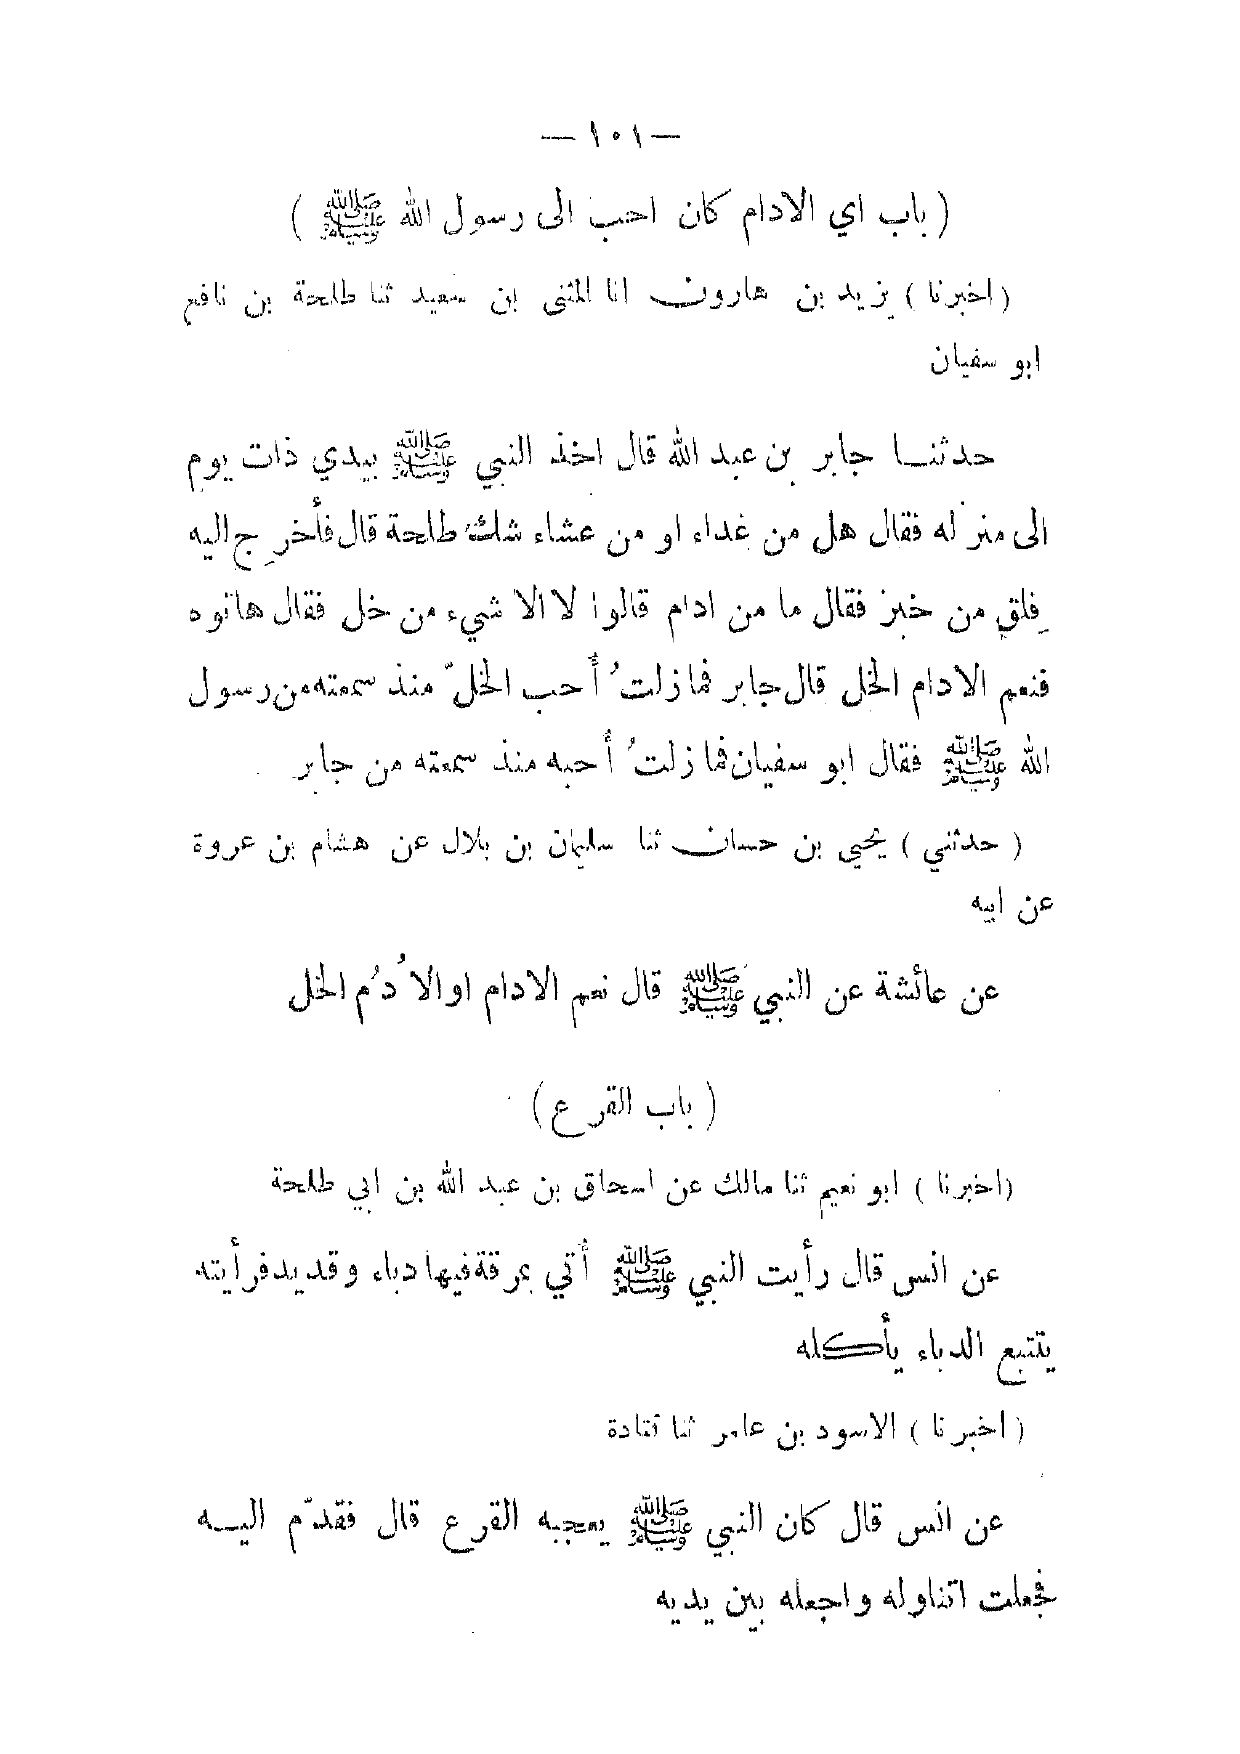 — ١٠١ —
( باب اي الادام كان احب الى رسول الله ﷺ )
(اخبرنا ) يزيد بن هارون انا المثنى بن سعيد ثنا طلحة بن نافع
ابو سفيان
حدثنا جابر بن عبد الله قال اخذ النبي ﷺ بيدي ذات يوم
الى منزله فقال هل من غداء او من عشاء شك طلحة قال فأخرِج اليه
فِلق من خبز فقال ما من ادام قالوا لا الا شيء من خل فقال هاتوه
فنعم الادام الخل قال جابر فما زلتُ أحب الخلّ منذ سمعته من رسول
الله ﷺ فقال ابو سفيان فما زلتُ أحبه منذ سمعته من جابر
( حدثني ) يحيى بن حسان ثنا سليمان بن بلال عن هشام بن عروة
عن ابيه
عن عائشة عن النبي ﷺ قال نعم الادام او الاُدُم الخل
( باب القرع )
(اخبرنا ) ابو نعيم ثنا مالك عن اسحاق بن عبد الله بن ابي طلحة
عن انس قال رأيت النبي ﷺ أُتي بمرقة فيها دباء وقديد فرأيته
يتتبع الدباء يأكله
( اخبرنا ) الاسود بن عامر ثنا قتادة
عن انس قال كان النبي ﷺ يعجبه القرع قال فقدّم اليه
فجعلت اتناوله واجعله بين يديه